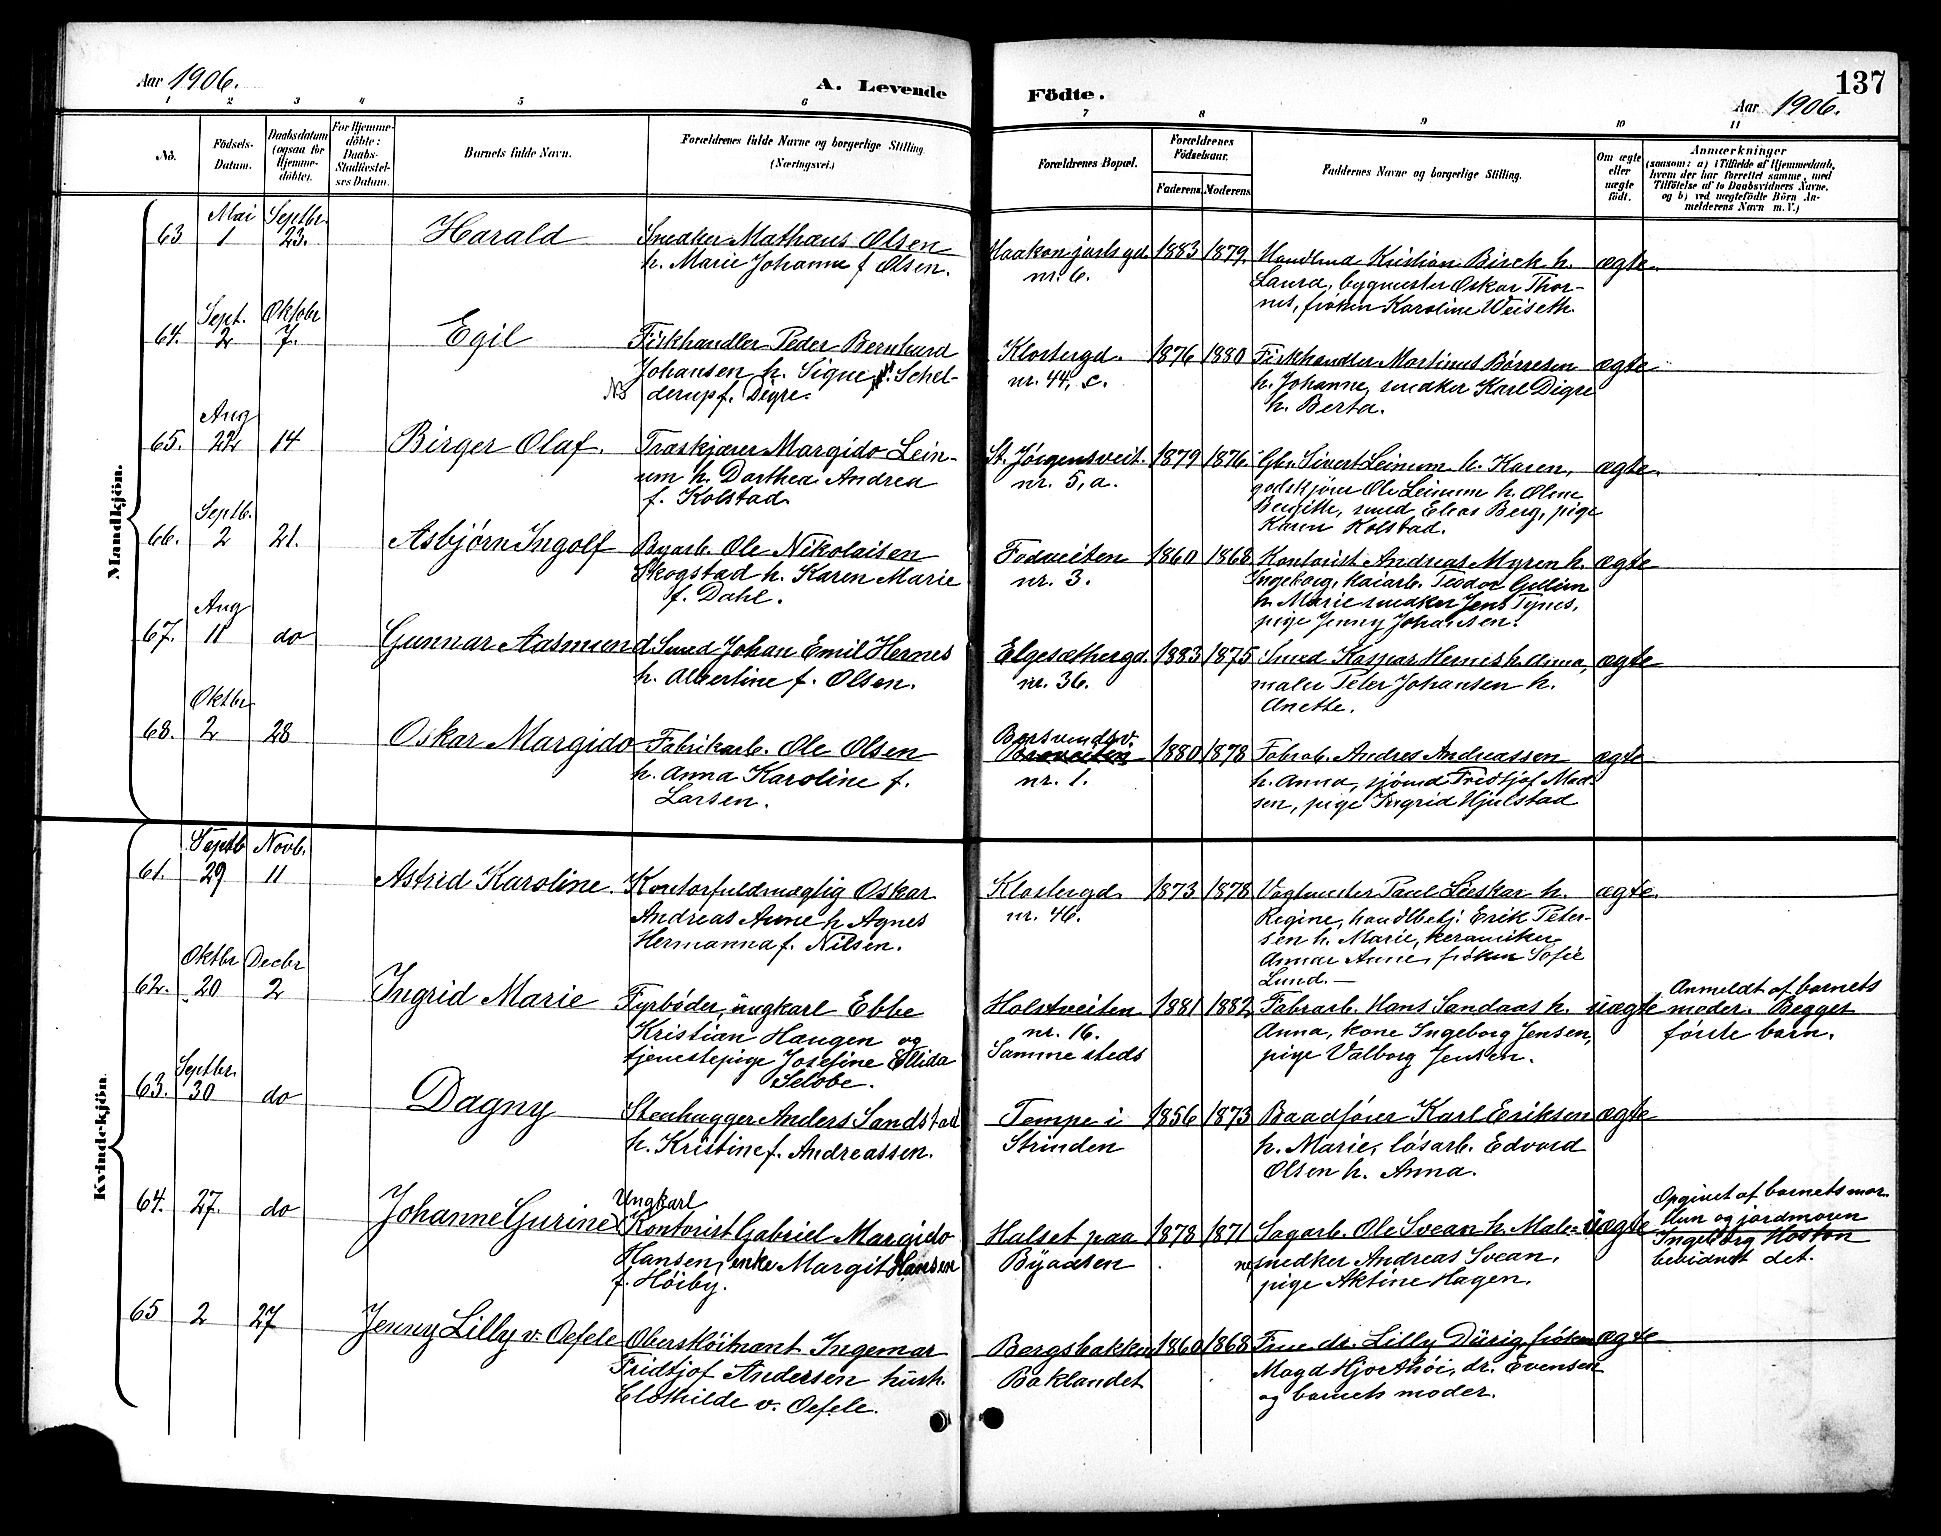 Aar 1906.
A. Levende
Födte.
137
Aar 1906.
1 2 3 4 5 6 7 8 9 10 11
No.
Födsels-
Datum.
Daabsdatum
(ogsaa for
Hjemme-
döbte).
For Hjemme-
döbte:
Daabs-
Stadfæstel-
ses Datum.
Barnets fulde Navn.
Forældrenes fulde Navne og borgerlige Stilling.
(Næringsvei.)
Forældrenes Bopæl.
Forældrenes
Födselsaar.
Faderens.
Moderens.
Faddernes Navne og borgerlige Stilling.
Om ægte
eller
uægte
födt.
Anmærkninger
(saasom: a) i Tilfælde af Hjemmedaab,
hvem der har forrettet samme, med
Tilföielse af to Daabsvidners Navne,
og b) ved uægtefödte Börn An-
melderens Navn m. V.)
Mandkjön.
63 Mai 1 Septbr. 23. Harald
Snedker Mathæus Olsen
h. Marie Johanne f Olsen.
Haakon jarls gd.
nr. 6.
1883 1879.
Handlmd Kristian Birch h.
Laura, bygmester Oskar Thor-
næs, frøken Karoline Weiseth.
ægte.
64. Sept. 2 Oktobr 7. Egil
Fiskhandler Peder Bernhard
Johansen h. Signe Schel-
derup f. Digre.
NB
Klostergd.
nr. 44, c.
1876 1880
Fiskhandler Martinus Børresen
h. Johanne, snedker Karl Digre
h. Berta.
ægte
65. Aug 22 14 Birger Olaf.
Træskjærer Margido Lein-
um h. Dorthea Andrea
f. Kolstad
St. Jørgensveit.
nr. 5, a.
1879 1876
Gbr. Sivert Leinum h. Karen,
godskjører Ole Leinum h. Oline
Bergitte, smed Elias Berg, pige
Karen Kolstad.
ægte.
66. Septb. 2 21. Asbjørn Ingolf
Byarb. Ole Nikolaisen
Skogstad h. Karen Marie
f. Dahl.
Fadveiten
nr. 3.
1860 1868
Kontorist Andreas Myren h.
Ingeborg, kaiarb. Teodor
h. Marie snedker Jens Tynes,
pige Jenny Johansen.
ægte
67. Aug 11 do Gunnar Aasmund
Smed Johan Emil Hernes
h. Albertine f. Olsen.
Elgesæthergd.
nr. 36.
1883 1875
Smed Kaspar Hernes h. Anna,
maler Peter Johansen h.
Anette.
ægte
68. Oktbr 2 28 Oskar Margido
Fabrikarb. Ole Olsen
h. Anna Karoline f.
Larsen.
Bersvendsv.
Broveiten
nr. 1.
1880 1878
Fabrab. Andres Andreassen
h. Anna, sjømd Fridtjof Mad-
sen, pige Ingrid Hjulstad
ægte
Kvindekjön.
61. Septb 29 Novb. 11 Astrid Karoline.
Kontorfuldmægtig Oskar
Andreas Aune h. Agnes
Hermanna f. Nilsen.
Klostergd.
nr. 46.
1873 1878
Vagtmester Paul Leeskar h.
Regine, handlbetj. Erik Peter-
sen h. Marie, keramiker
Annar Aune, frøken Sofie
Lund. —
ægte.
62. Oktbr 20 Decbr 2 Ingrid Marie
Fyrbøder, ungkarl Ebbe
Kristian Haugen og
tjenestepige Josefine Ellida
Selbbe.
Holstveiten
nr. 16.
Samme steds
1881 1882
Fabrarb. Hans Sandaas h.
Anna, kone Ingeborg Jensen,
pige Valborg Jensen.
uægte
Anmeldt af barnets
moder. Begges
første barn.
63. Septbr. 30 do Dagny
Stenhugger Anders Sandstad
h. Kristine f. Andreassen.
Tempe i
Strinden
1856 1873
Baadfører Karl Eriksen
h. Marie, løsarb. Edvard
Olsen h. Anna.
ægte
64. 27. do Johanne Gurine
Ungkarl
Kontorist Gabriel Margido
Hansen, enke Margit Hansen
f. Høiby.
Halset paa
Byaasen
1878 1871
Sagarb. Ole Svean h. Male-
ne, snedker Andreas Svean,
pige Aktine Hagen.
uægte
Opgivet af barnets mor.
Hun og jordmoren
Ingeborg Hoston
bevidnet det.
65 2 27 Jenny Lilly v. Oefele
Oberstløitnant Ingemar
Fridtjof Andersen hustr.
Clothilde v. Oefele.
Bergsbakken
Baklandet
1860 1868
Frue dr. Lilly Dürig, frøken
Magd Hjorthöi, dr. Evensen
og barnets moder.
ægte